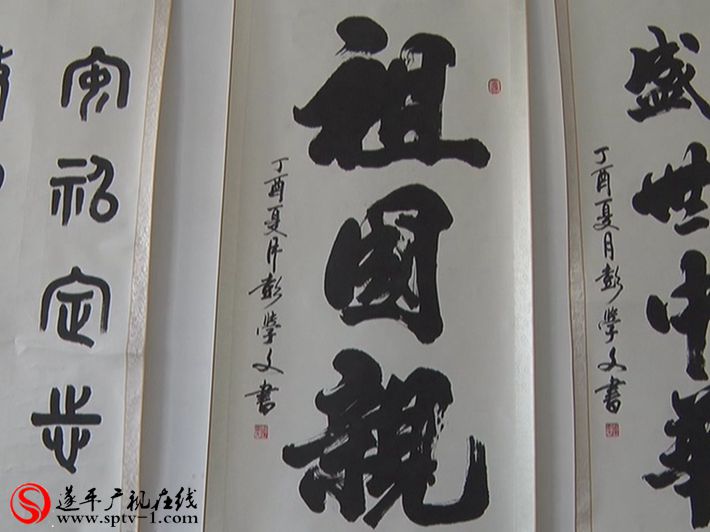 盛世中華
丁酉夏月彭学文書
祖國親
丁酉夏月彭学文書
定步
遂平广视在线
www.sptv-1.com